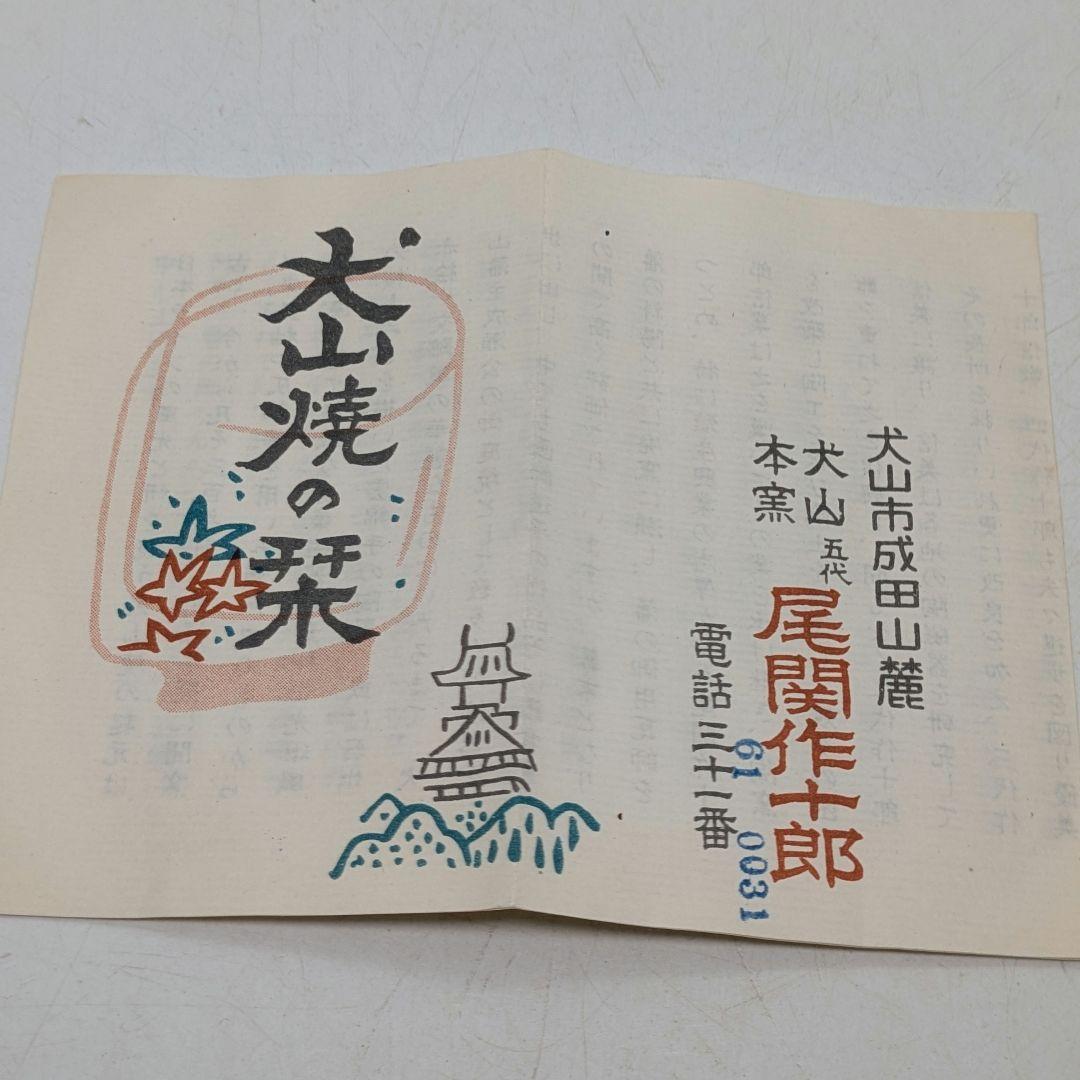 犬山市成田山麓
犬山
本窯
五代
尾関作十郎
電話 三十一番
61 0031
犬山焼の栞